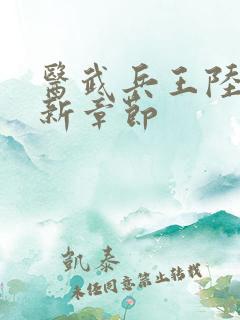 醫武兵王陸
新章節
凱泰
未经同意禁止转载